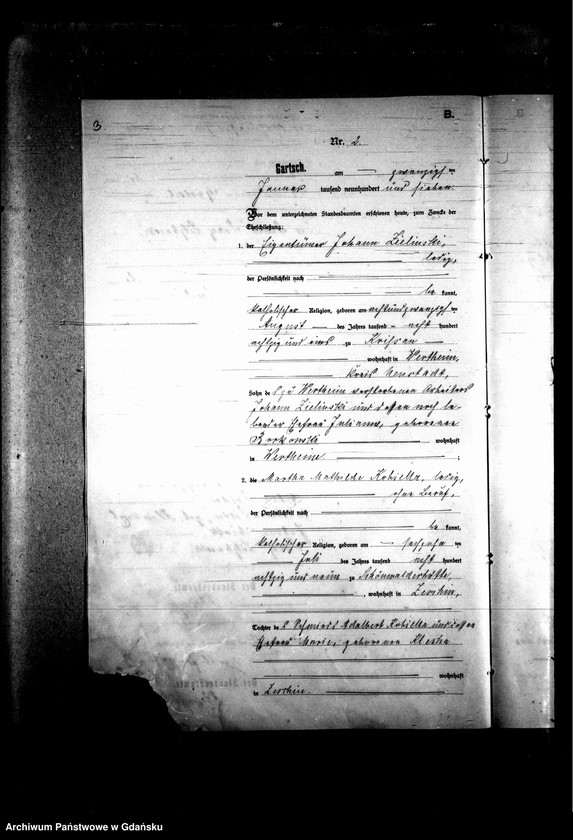 3
B.
Nr. 2.
Gartsch. am zwanzigsten
Januar tausend neunhundert und sieben.
Vor dem unterzeichneten Standesbeamten erschienen heute, zum Zwecke der
Eheschließung:
1. der Eigentümer Johann Zielinski,
ledig,
der Persönlichkeit nach
be kannt,
katholischer Religion, geboren am achtundzwanzigsten
August des Jahres tausend acht hundert
achtzig und eins zu Krissau
wohnhaft in Wertheim,
Kreis Neustadt,
Sohn des zu Wertheim verstorbenen Arbeiters
Johann Zielinski und dessen noch le
bender Ehefrau Julianna, geborenen
Borkowski wohnhaft
in Wertheim. ;
2. die Martha Mathilde Kobiella, ledig,
ohne Beruf,
der Persönlichkeit nach
be kannt,
katholischer Religion, geboren am
Juli des Jahres tausend acht hundert
achtzig und neun zu Schönwalderhütte,
, wohnhaft in Zerrhin,
Tochter des Schmieds Adalbert Kobiella und dessen
Ehefrau Marie, geborenen
wohnhaft
in Zerrhin.
Archiwum Państwowe w Gdańsku